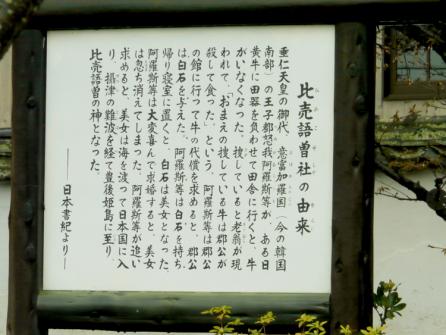 比売語曽社の由来
垂仁天皇の御代、意富加羅国(今の韓国
南部)の王子都怒我阿羅斯等が、ある日
黄牛に田器を負わせて田舎に行くと、牛
がいなくなった。捜していると老翁が現
われて、「おまえの捜している牛は郡公が
殺して食った」という。阿羅斯等は郡公
の館に行って牛の代償を求めると、郡公
は白石を与えた。阿羅斯等は白石を持ち
帰り寝室に置くと、白石は美女となった。
阿羅斯等は大変喜んで求婚すると、美女
は忽ち消えてしまった。阿羅斯等が追い
求めると、美女は海を渡って日本国に入
り、摂津の難波を経て豊後姫島に至り、
比売語曽の神となった。
――日本書紀より――